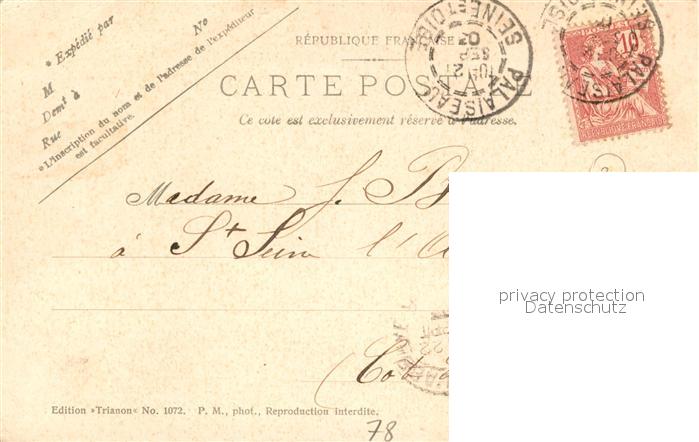 * Expédié par
No
M
Demt à
Rue
*L'inscription du nom et de l'adresse de l'expéditeur
est facultative.
RÉPUBLIQUE FRANÇAISE
CARTE POSTALE
Ce côté est exclusivement réservé à l'adresse.
PALAISEAU
SEINE ET OISE
21
SEPT
02
10
POSTES
RÉPUBLIQUE FRANÇAISE
PALAISEAU
Madame J. B
à St Seine l'A
privacy protection
Datenschutz
22
Cot
Edition »Trianon« No. 1072. P. M., phot., Reproduction interdite.
78